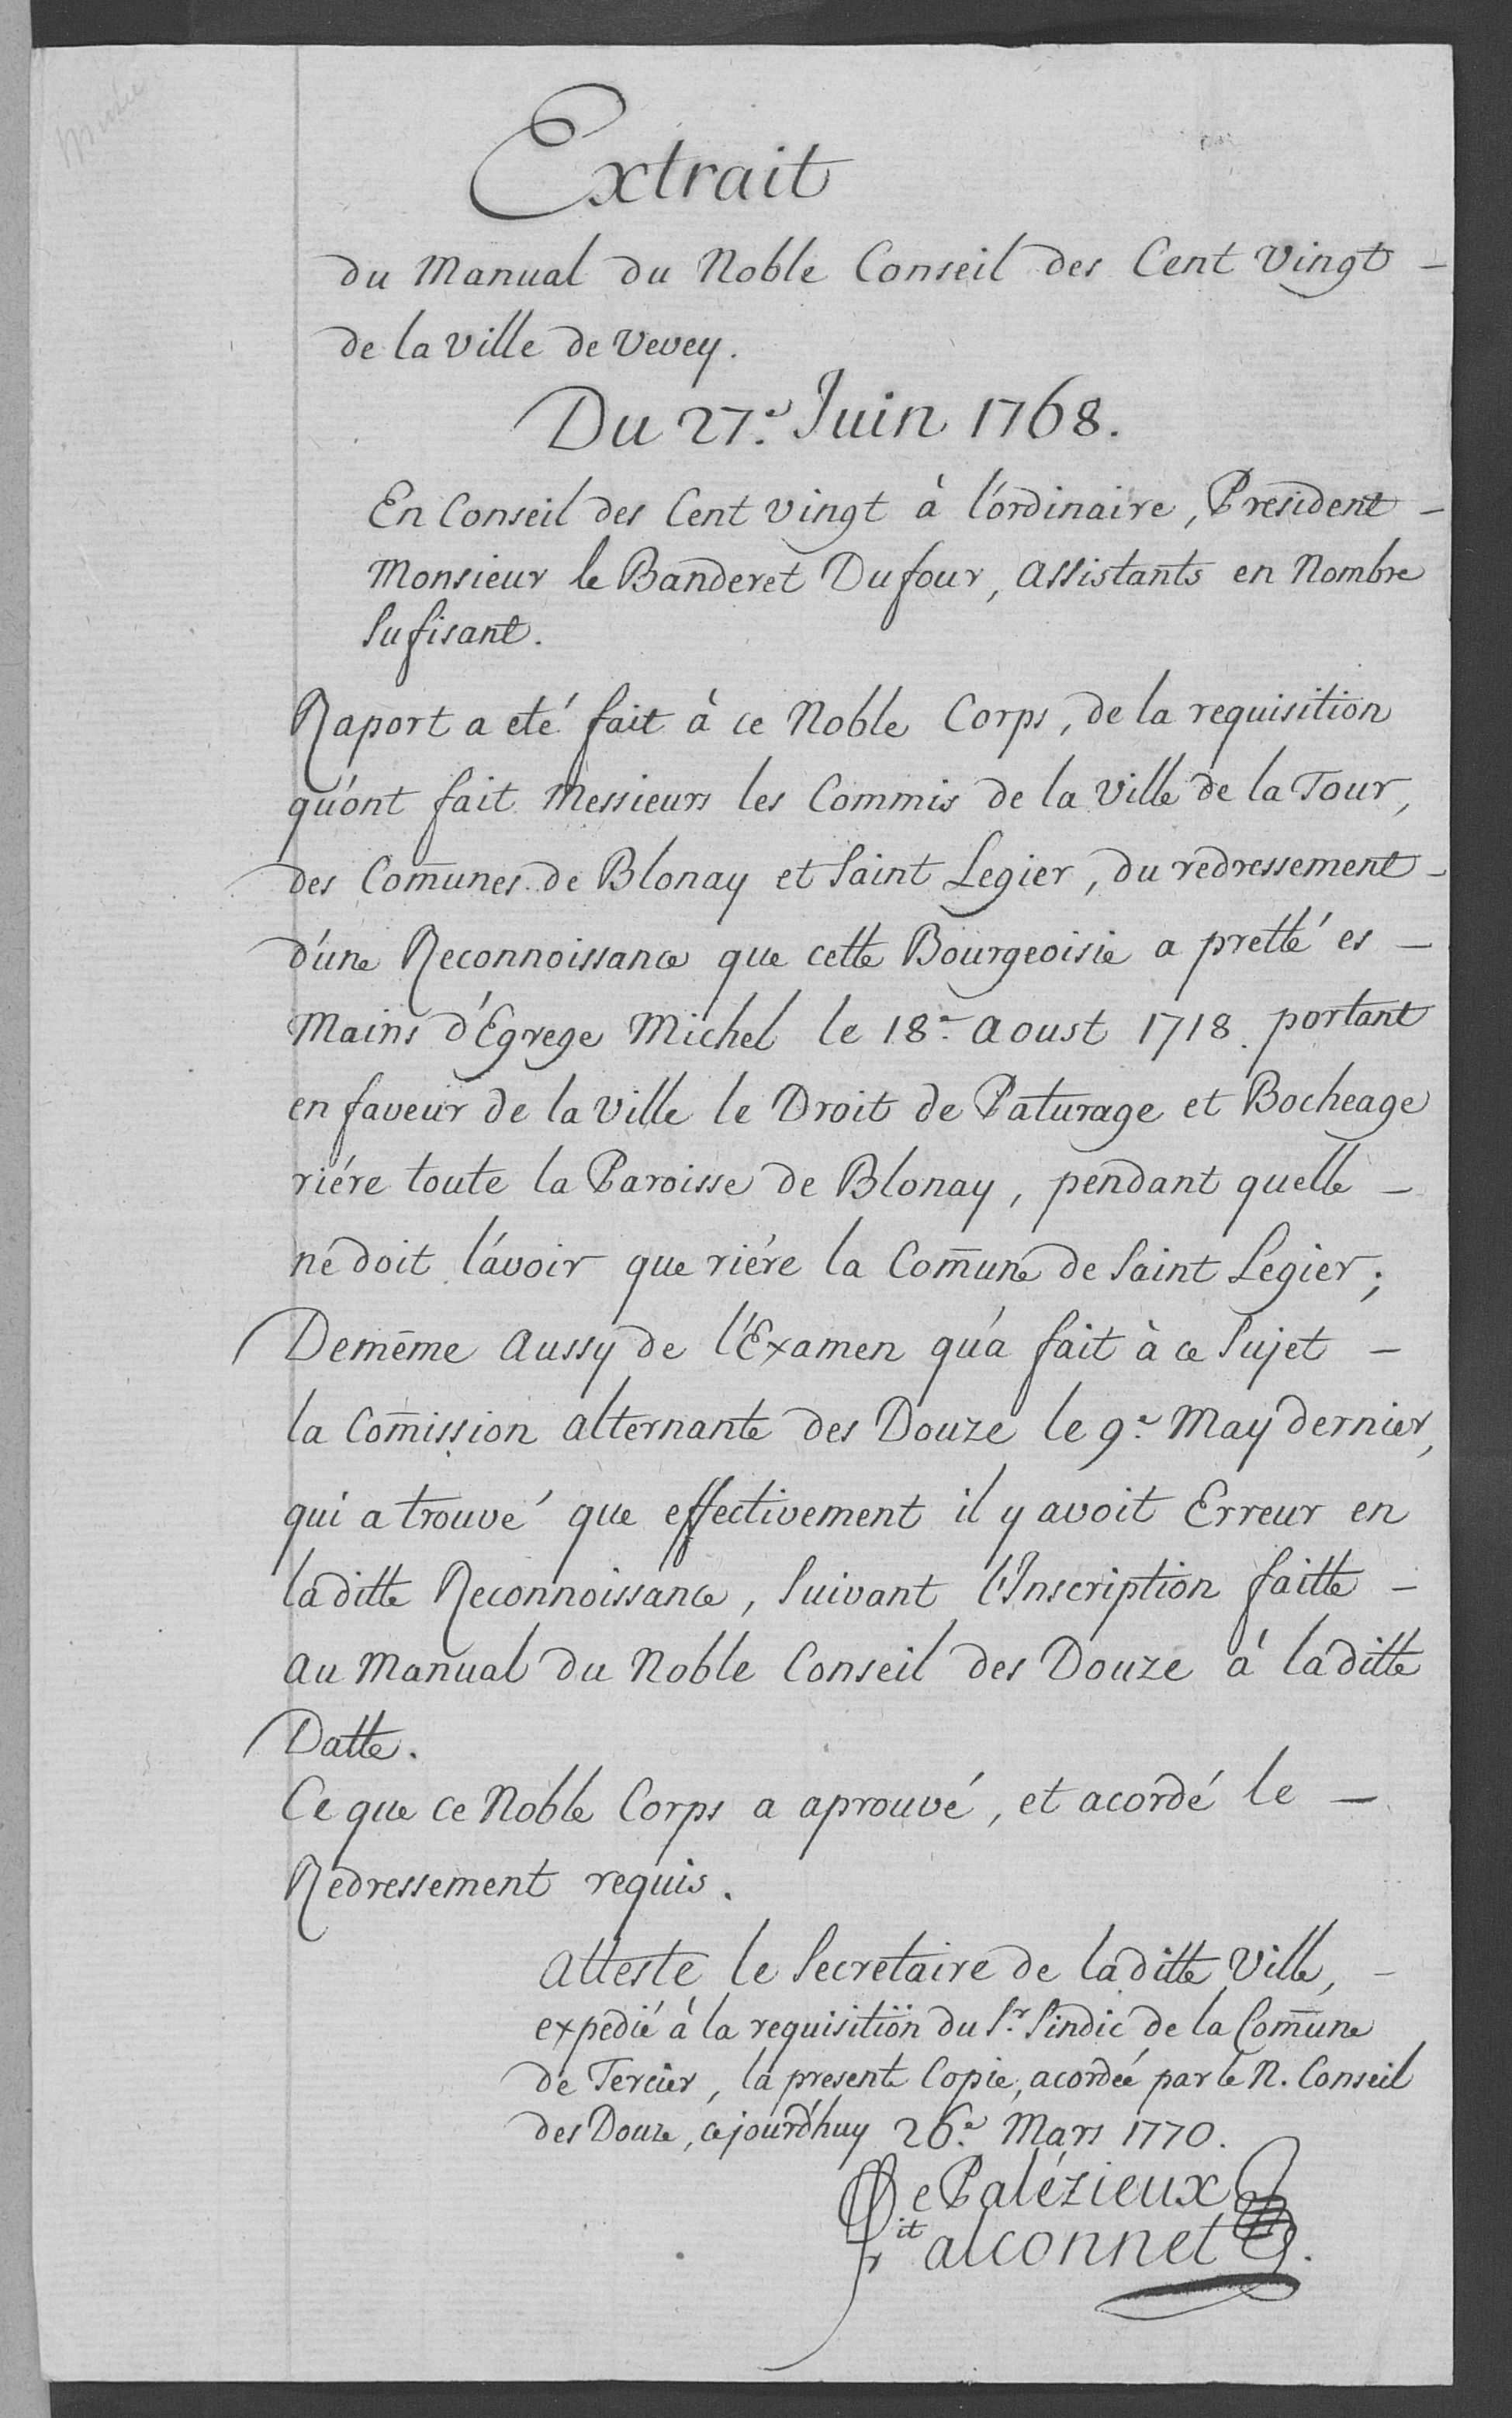 Extrait
du Manual du Noble Conseil des Cent Vingt -
de la ville de Vevey.
Du 27.e Juin 1768.
En Conseil des Cent vingt à l'ordinaire, President -
Monsieur le Banderet Dufour, assistants en Nombre
Sufisant.
Raport a eté fait à ce Noble Corps, de la requisition
qu'ont fait Messieurs les Commis de la Ville de la Tour,
des Com̄unes de Blonay et Saint Legier, du redressement -
d'une Reconnoissance que cette Bourgeoisie a pretté es -
Mains d'Egrege Michel le 18.e Aoust 1718. portant
en faveur de la Ville le Droit de Paturage et Bocheage
riére toute la Paroisse de Blonay, pendant quelle -
ne doit l'avoir que riére la Com̄une de Saint Legier;
Deméme aussy de l'Examen qu'a fait à ce Sujet -
la Com̄ission alternante des Douze le 9.e May dernier,
qui a trouvé que effectivement il y avoit Erreur en
laditte Reconnoissance, Suivant l'Inscription faitte -
au Manual du Noble Conseil des Douze à laditte
Datte.
Ce que ce Noble Corps a aprouvé, et acordé le -
Redressement requis.
Atteste le Secretaire de laditte Ville, -
expedié à la requisition du Sr. Sindic de la Com̄une
de Tercier, la presente Copie, acordée par le N. Conseil
des Douze, cejourd'huy 26.e Mars 1770.
De Palézieux
it Falconnet